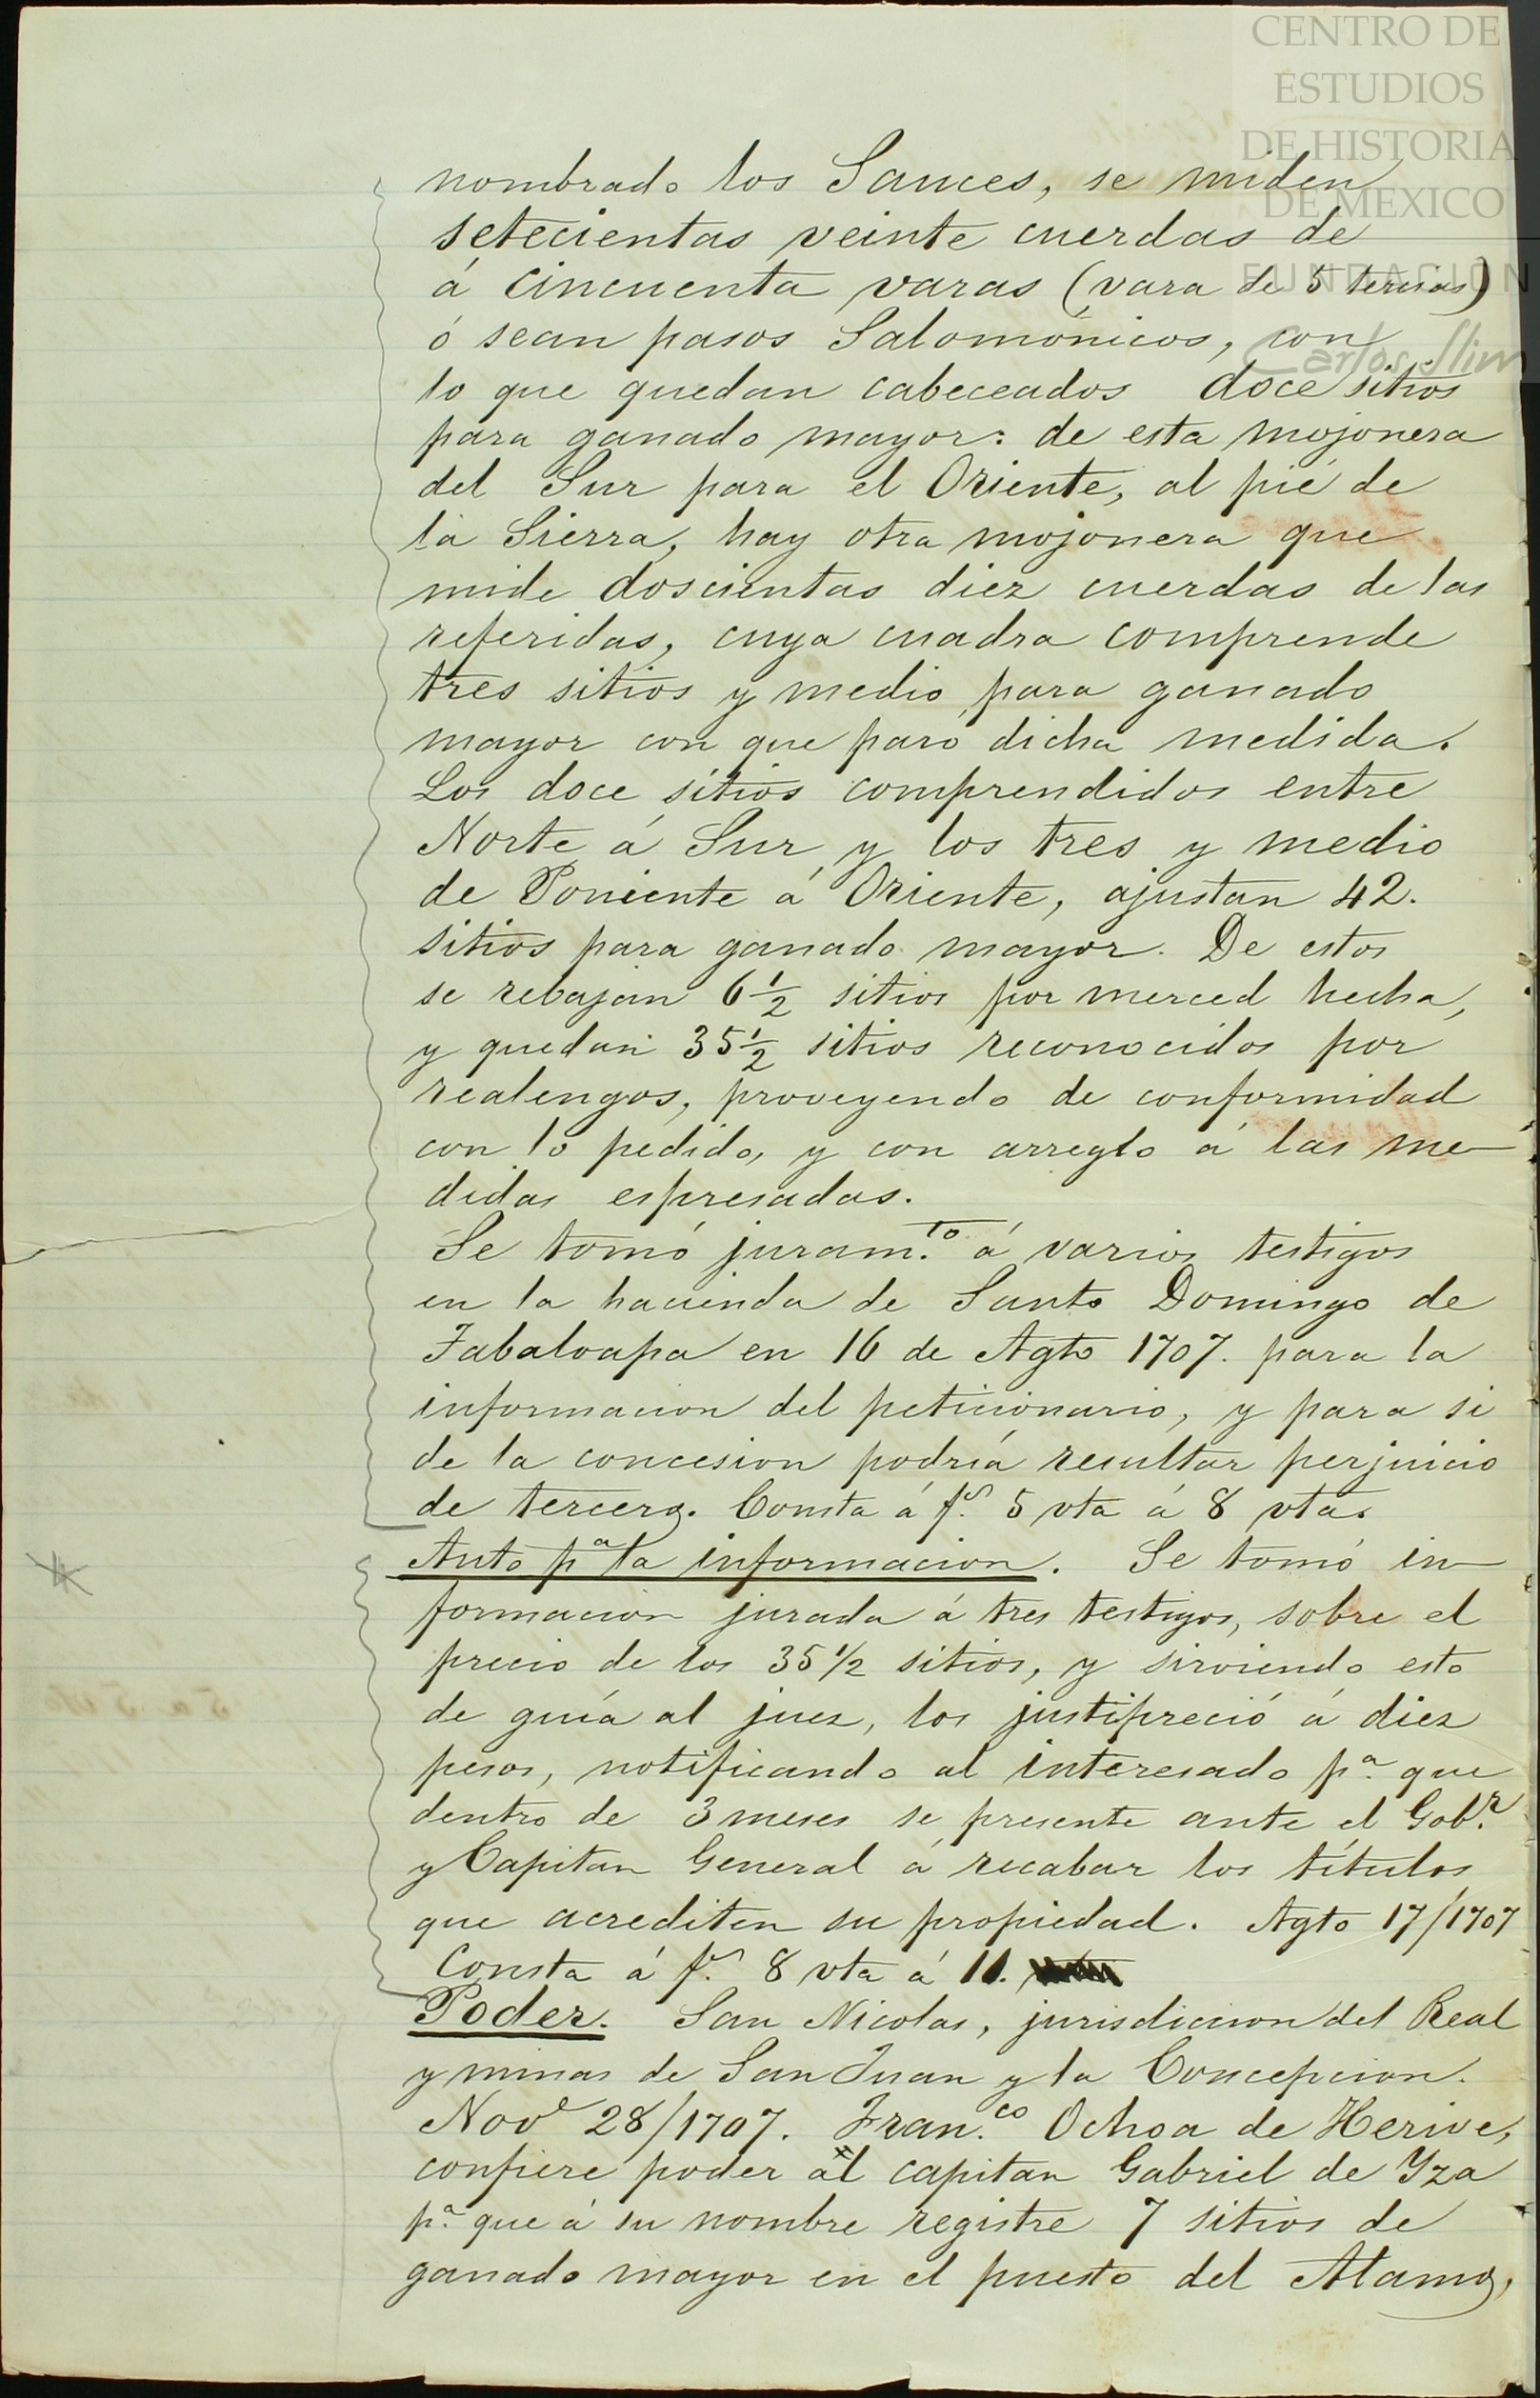 CENTRO DE
ESTUDIOS
DE HISTORIA
DE MEXICO
FUNDACION
Carlos Slim
nombrado los Sauces, se miden
setecientas veinte cuerdas de
á cincuenta varas (vara de 5 tercias)
ó sean pasos Salomónicos, con
lo que quedan cabeceados doce sitios
para ganado mayor: de esta mojonera
del Sur para el Oriente, al pié de
la Sierra, hay otra mojonera que
mide doscientas diez cuerdas de las
referidas, cuya cuadra comprende
tres sitios y medio para ganado
mayor con que paró dicha medida.
Los doce sitios comprendidos entre
Norte á Sur y los tres y medio
de Poniente á Oriente, ajustan 42.
sitios para ganado mayor. De estos
se rebajan 6 1/2 sitios por merced hecha,
y quedan 35 1/2 sitios reconocidos por
realengos, proveyendo de conformidad
con lo pedido, y con arreglo á las me-
didas espresadas.
Se tomó juram.to á varios testigos
en la hacienda de Santo Domingo de
Tabaloapa en 16 de Agto 1707. para la
informacion del peticionario, y para si
de la concesion podría resultar perjuicio
de tercero. Consta á fs. 5 vta á 8 vta.
Auto pa la informacion. Se tomó in-
formacion jurada á tres testigos, sobre el
precio de los 35 1/2 sitios, y sirviendo esto
de guía al juez, los justipreció á diez
pesos, notificando al interesado p.a que
dentro de 3 meses se presente ante el Gob.r
y Capitan General á recabar los títulos
que acrediten su propiedad. Agto 17/1707
Consta á fs. 8 vta á 11.
Poder. San Nicolas, jurisdiccion del Real
y minas de San Juan y la Concepcion.
Nove 28/1707. Fran.co Ochoa de Herive,
confiere poder al capitan Gabriel de Yza
p.a que á su nombre registre 7 sitios de
ganado mayor en el puesto del Alamo,